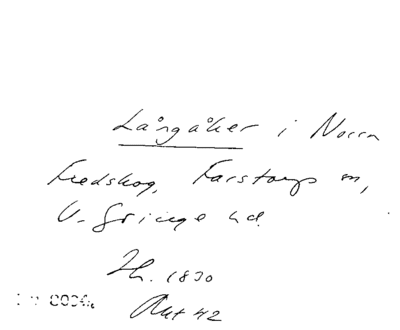 Långåker i Norra
Fredskog, Farstorps sn,
V. Göinge hd.
Jh. 1830
Akt 42